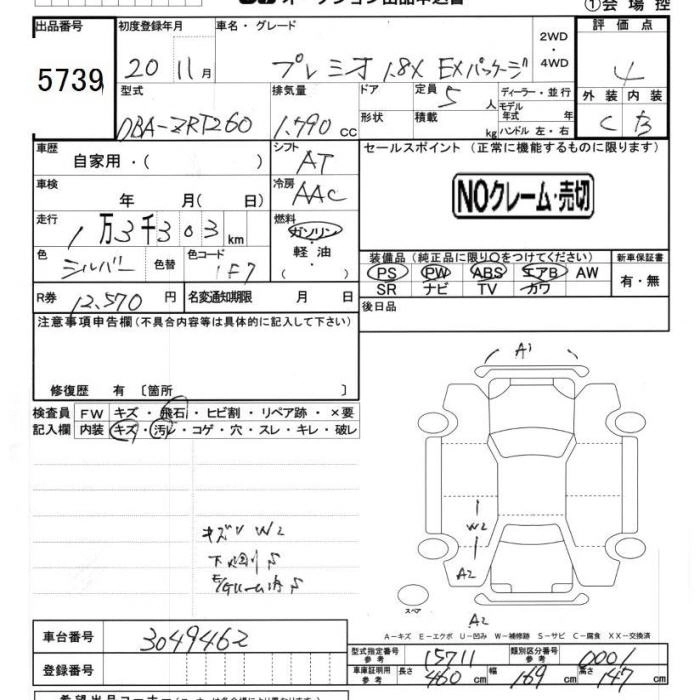 ①会場控
出品番号 5739
初度登録年月 20 11月
車名・グレード プレミオ 1.8X EXパッケージ
2WD・4WD
評価点 4
外装 内装
C B
型式 DBA-ZRT260
排気量 1.790 cc
ドア 形状
定員 5 人
積載 kg
ディーラー・並行
モデル年式 年
ハンドル 左・右
車歴 自家用・( )
シフト AT
車検 年 月( 日)
冷房 AAC
走行 1万3千303 km
燃料 ガソリン・軽油・( )
色 シルバー 色替
色コード 1F7
R券 12,570 円
名変通知期限 月 日
セールスポイント(正常に機能するものに限ります)
NOクレーム・売切
装備品(純正品に限り○をつけてください)
PS PW ABS エアB AW
SR ナビ TV カワ
新車保証書
有・無
後日品
注意事項申告欄(不具合内容等は具体的に記入して下さい)
修復歴 有 〔箇所 〕
検査員 FW キズ・飛石・ヒビ割・リペア跡・×要
記入欄 内装 キズ・汚レ・コゲ・穴・スレ・キレ・破レ
キズV W2
下回り S
E/gルーム内 S
A1
W2
A2
スペア
A2
A-キズ E-エクボ U-凹み W-補修跡 S-サビ C-腐食 XX-交換済
車台番号 3049462
登録番号
型式指定番号 参考 15711
類別区分番号 参考 0001
車庫証明用 参考 長さ 460 cm 幅 169 cm 高さ 147 cm